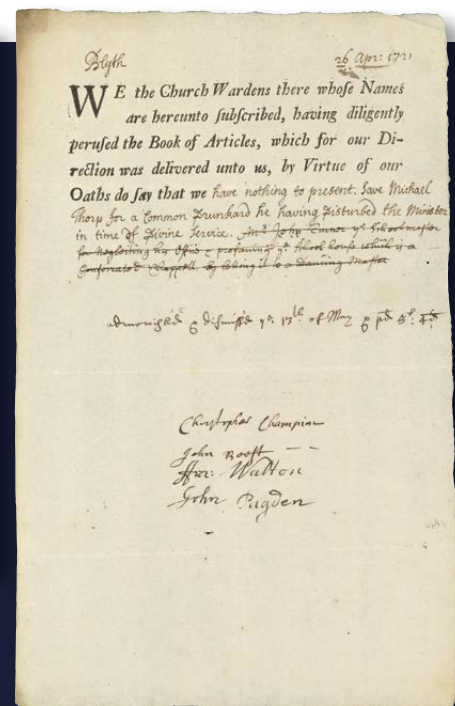 Blyth 26 Apr: 1721
WE the Church Wardens there whose Names
are hereunto subscribed, having diligently
perused the Book of Articles, which for our Di-
rection was delivered unto us, by Virtue of our
Oaths do say that we have nothing to present. Save Michael
Thorp for a Common Drunkard he having Disturbed the Minister
in time of Divine Service. And John ye Schoolmaster
for Neglecting his Office & profaning ye School house which is a
Consecrated Chappell, by letting it to a Dancing Master
admonish'd & dismiss'd ye 17th of May & pd 5s: 4d
Christopher Champion
John Roost
Walton
John Pugden